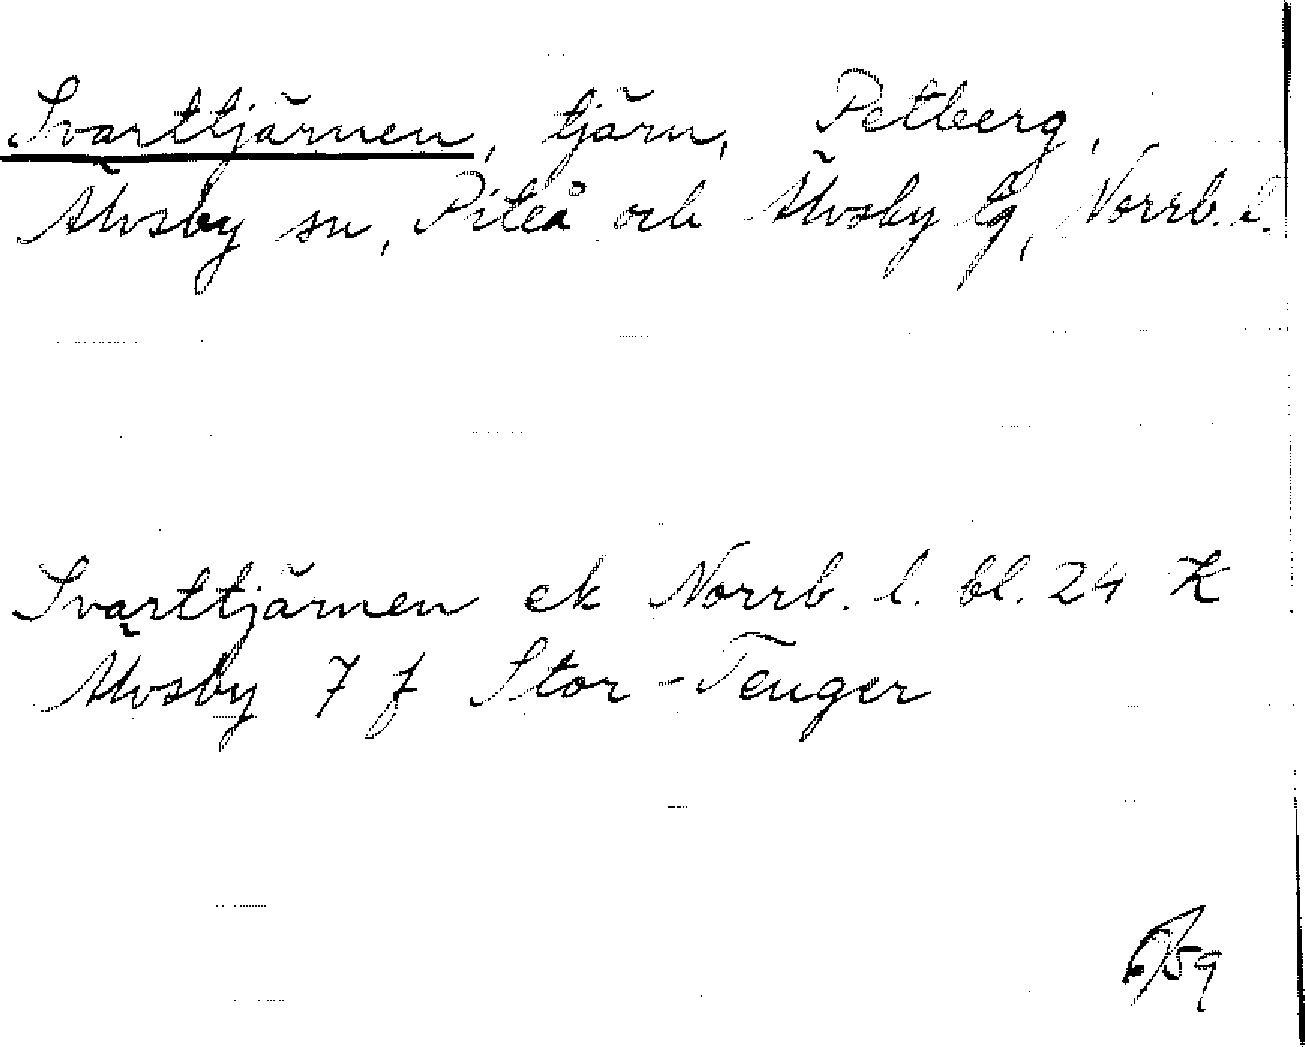 Svarttjärnen, tjärn, Petberg,
Älvsby sn, Piteå och Älvsby tg, Norrb. l.
Svarttjärnen ek Norrb. l. bl. 24 K
Älvsby 7 f Stor-Tenger